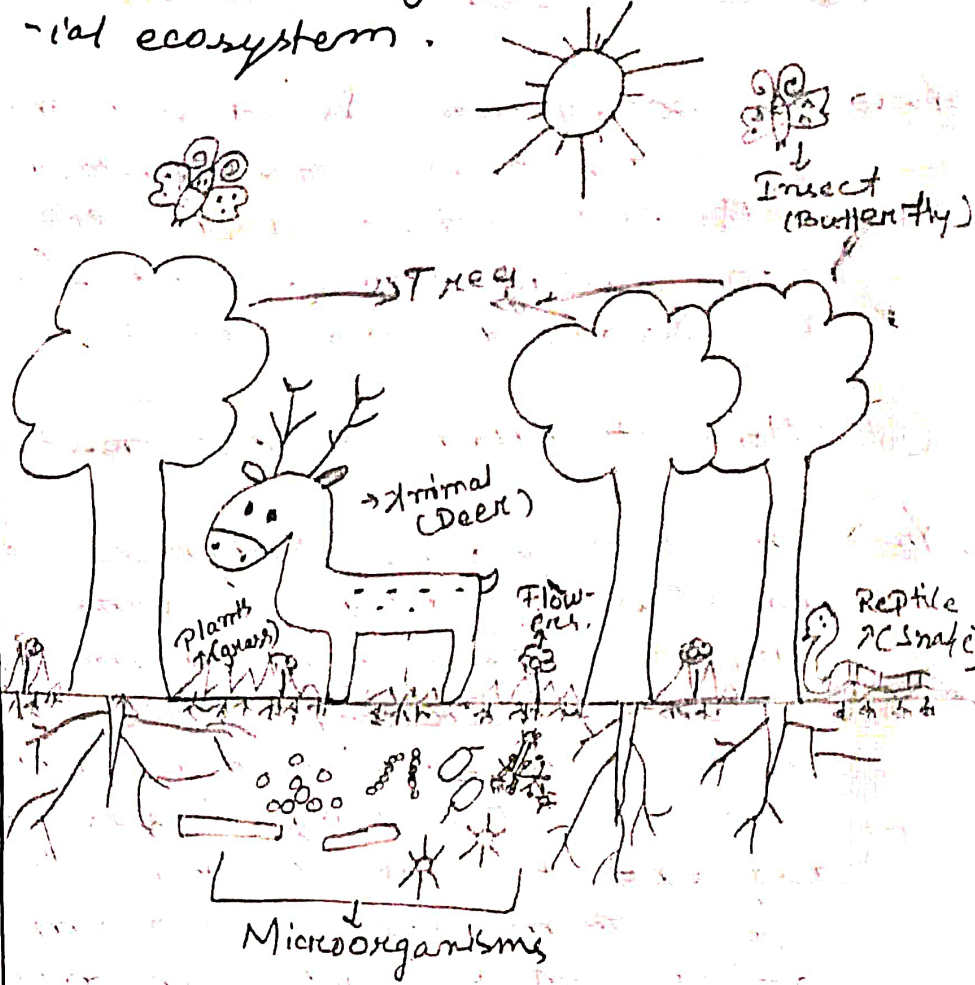 -ial ecosystem.
Insect
(Butterfly)
Tree
Animal
(Deer)
Plants
(grass)
Flow-
ers.
Reptile
(Snake
Microorganisms